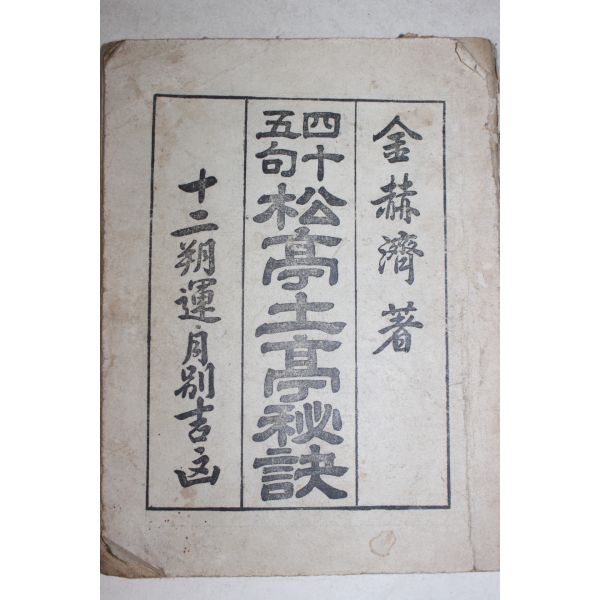 金赫濟著
四十五句 松亭土亭秘訣
十二朔運月別吉凶